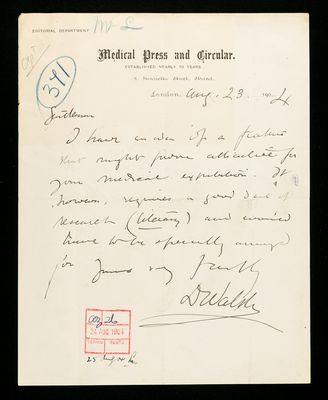 EDITORIAL DEPARTMENT
Medical Press and Circular.
ESTABLISHED NEARLY 70 YEARS
8, Henrietta Street, Strand,
London, Aug. 23 1904
341
Gentlemen
I have an idea of a feature
that might prove attractive for
your medical exposition. It
however, requires a good deal of
research (literary) and would
have to be specially arranged
for Yours very truly
D Walsh
24 AUG 1904
25 Aug 04